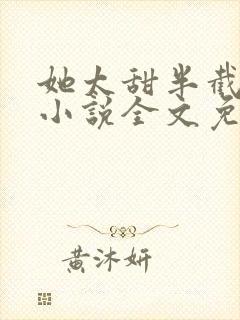 她太甜半截
小说全文免
黄沐妍